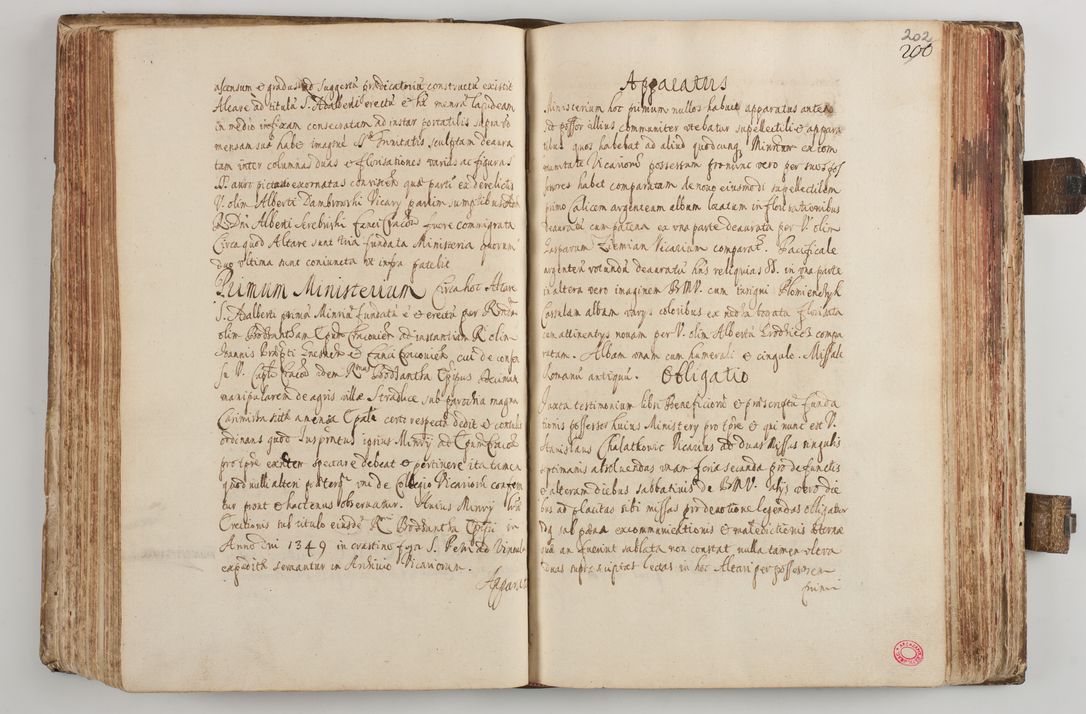 ascensum et gradus ad suggestũ prædicatoriũ constructũ existit
Altare ad titulũ S. Adalberti erectũ et hã mensã lapideam
in medio infixam consecratam ad instar portatilis supra
mensam suã habe imaginẽ SS. Trinitatis sculptam deaura
tam inter columnas duas et florisationes varias ac figuras
SS. auro exornatas quæ partĩ ex derelictis
V. olim Alberti Dambrowski Vicary partim sumptibus
R. Dni Alberti Serebrski Canci Cracoѵ. fuere
Circa quod Altare sunt tria fundata Ministeria quorum
duo ultima sunt coniuncta ut infra patebit
Primum Ministerium Circa hoc Altare
S. Adalberti primũ Minriũ fundatũ e et erectũ per Rndũ
olim Bodzantham Epum Cracovien ad instantium R. olim
Joannis et Canci Cracovien cui de consen
su V. Capli Cracov idem Rmus Bodzantha Epus decimam
manipularem de agris villæ Straduce sub parochia magna
Casimiria sitã a mensæ Epali certo respectu dedit et contulit
ordinans quod Inspnatus ipsius Minrij ad Epum Cracov
pro tpre existen spectare debeat et pertinere ita tamen
quod nulli alteri vni de Collegio Vicariorũ conferre
tur prout et hactenus observatur. Huius Minrij
Erectionis sub titulo eiusdẽ R. Bodzantha Epĩ in
Anno Dni 1349 in crastino festi S. Petri ad Vincula
expeditæ servantur in Archivo Vicariorum.
Apparat
202
200
Apparatus
Ministerium hoc primum nullos habuit apparatus antea
sed possor illius communiter utebatur supellectili et appara
tibus quos habebat ad aliud quodcunq Ministeriũ ex com
munitate Vicariorũ possessum pro nunc vero per suos pos
sessores habet comparatam de novo eiusmodi supellectilem
primo Calicem argenteum album locatum in florisationibus
deauratũ cum patena ex una parte deaurata per V. olim
Gasparum Ziemian Vicarium comparat. Pacificale
argenteũ rotundũ deauratũ hñs reliquias SS. in una parte
in altera vero imaginem BMV. cum insigni Plomienczyk
Casulam albam varys coloribus ex florisata
cum attinentys novam per V. olim Albertũ Grodzieck compa
ratam. Albam unam cum humerali et cingulo. Missale
Romanũ antiquũ. Obligatio
Juxta testimonium libri Beneficiorũ et præscriptũ funda
tionis possessor huius Ministery pro tpre et qui nunc est V.
Stanislaus Chalatkovic Vicarius ad duas Missas singulis
septimanis absolvendas unam feria secunda pro defunctis
et alteram diebus sabbativis de BMV. alys vero die
bus ad placitas sibi missas pro devotione legendas obligatur
idq sub pæna excommunicationis et maledictionis æternæ
quæ an fuerint sublata non constat nulla tamen ultra
duas supra scriptas lectas in hoc Altari per possessorem